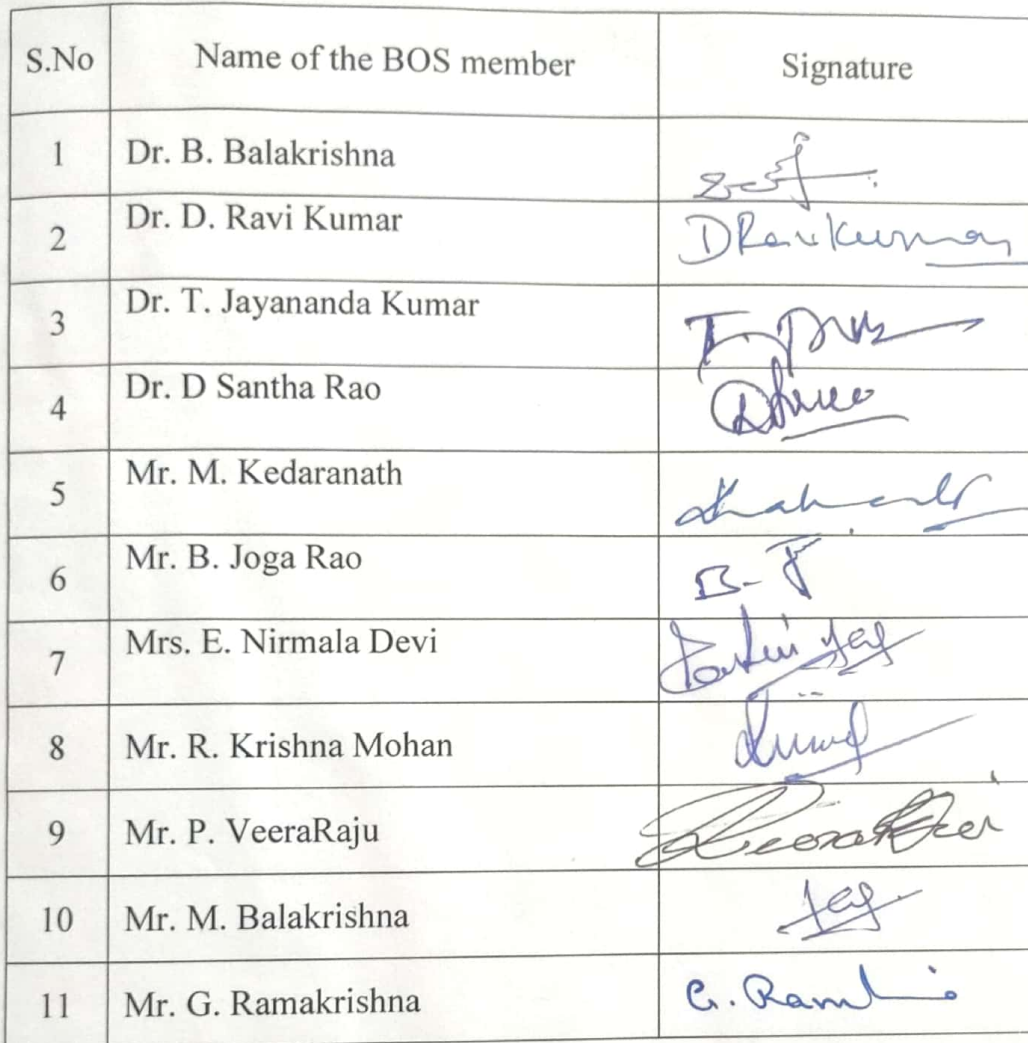 S.No Name of the BOS member Signature
1 Dr. B. Balakrishna
2 Dr. D. Ravi Kumar DRavikumar
3 Dr. T. Jayananda Kumar
4 Dr. D Santha Rao
5 Mr. M. Kedaranath
6 Mr. B. Joga Rao
7 Mrs. E. Nirmala Devi
8 Mr. R. Krishna Mohan
9 Mr. P. VeeraRaju
10 Mr. M. Balakrishna
11 Mr. G. Ramakrishna